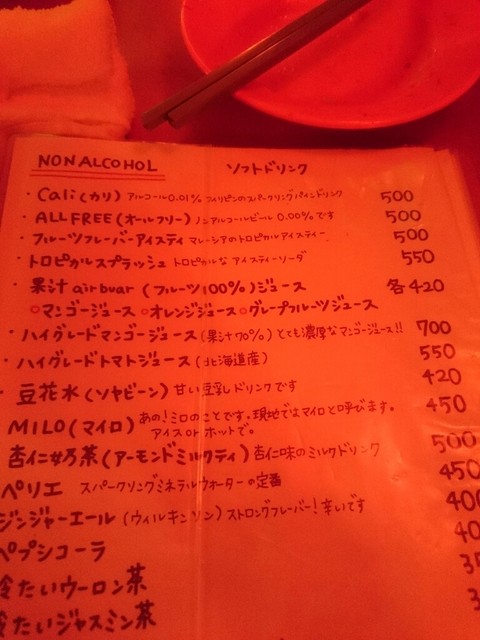 NON ALCOHOL ソフトドリンク
・Cali(カリ) アルコール0.01% フィリピンのスパークリングパインドリンク 500
・ALL FREE(オールフリー) ノンアルコールビール 0.00%です 500
・フルーツフレーバーアイスティ マレーシアのトロピカルアイスティー 500
・トロピカルスプラッシュ トロピカルな アイスティーソーダ 550
・果汁 air buar (フルーツ100%)ジュース 各420
○マンゴージュース ○オレンジジュース ○グレープフルーツジュース
・ハイグレードマンゴージュース(果汁70%)とても濃厚なマンゴージュース!! 700
・ハイグレードトマトジュース(北海道産) 550
・豆花水(ソヤビーン) 甘い豆乳ドリンクです 420
MILO(マイロ) あの!ミロのことです。現地ではマイロと呼びます。 450
アイス or ホットで。
杏仁奶茶(アーモンドミルクティ) 杏仁味のミルクドリンク 500
ペリエ スパークリングミネラルウォーターの定番 450
ジンジャーエール (ウィルキンソン) ストロングフレーバー!辛いです 400
ペプシコーラ 40
冷たいウーロン茶 35
冷たいジャスミン茶 3